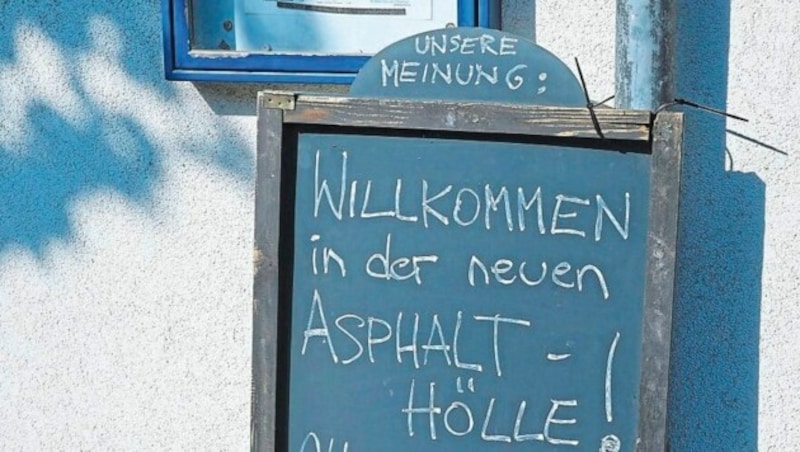 UNSERE
MEINUNG:
WILLKOMMEN
in der neuen
ASPHALT-
HÖLLE!